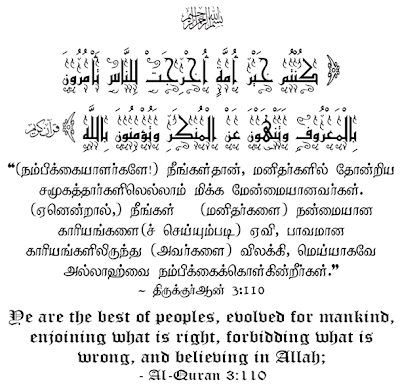 بسم الله الرحمن الرحيم
﴿ كُنْتُمْ خَيْرَ أُمَّةٍ أُخْرِجَتْ لِلنَّاسِ تَأْمُرُونَ
بِالْمَعْرُوفِ وَتَنْهَوْنَ عَنِ الْمُنْكَرِ وَتُؤْمِنُونَ بِاللَّهِ ﴾ قرآن كريم
“(நம்பிக்கையாளர்களே!) நீங்கள்தான், மனிதர்களில் தோன்றிய
சமுகத்தார்களிலெல்லாம் மிக்க மேன்மையானவர்கள்.
(ஏனென்றால்,) நீங்கள் (மனிதர்களை) நன்மையான
காரியங்களை(ச் செய்யும்படி) ஏவி, பாவமான
காரியங்களிலிருந்து (அவர்களை) விலக்கி, மெய்யாகவே
அல்லாஹ்வை நம்பிக்கைக்கொள்கின்றீர்கள்.”
~ திருக்குர்ஆன் 3:110
Ye are the best of peoples, evolved for mankind,
enjoining what is right, forbidding what is
wrong, and believing in Allah;
- Al-Quran 3:110